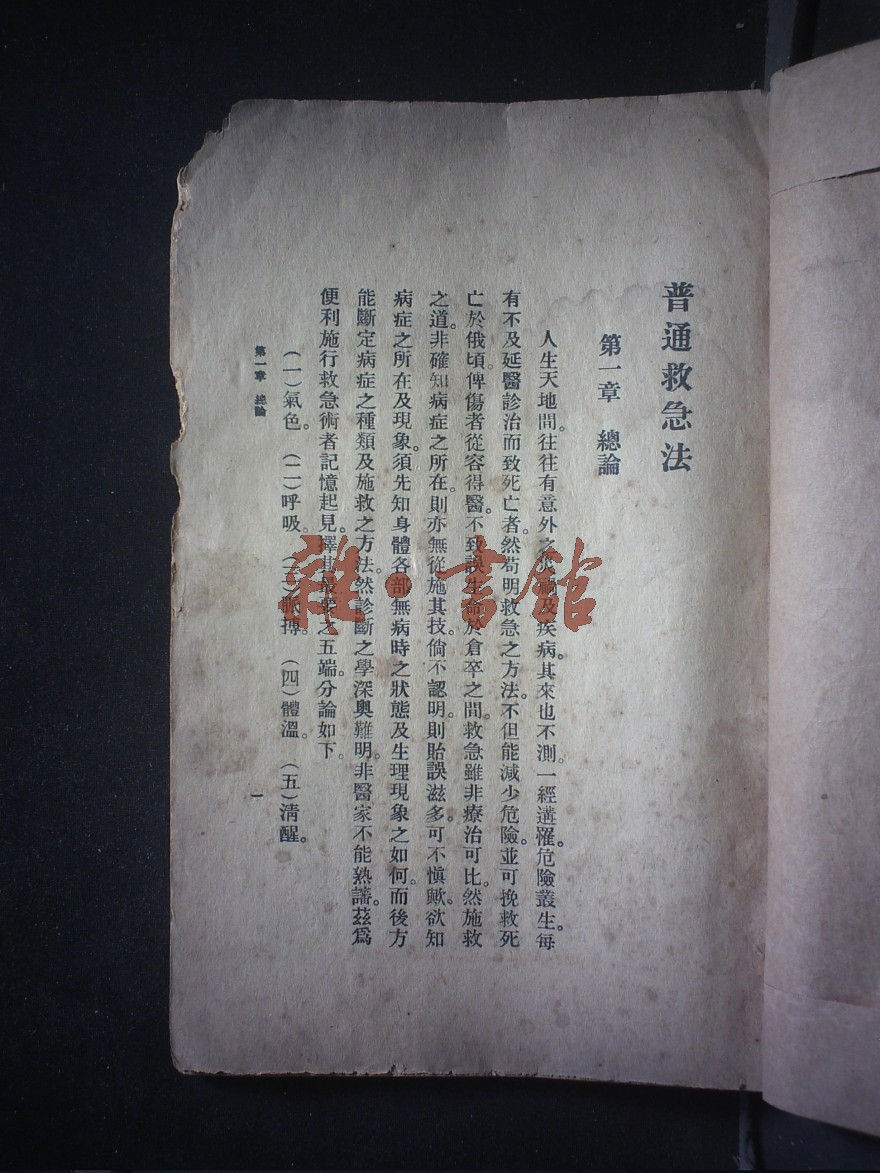 普通救急法
第一章 總論
人生天地間。往往有意外之災禍及疾病。其來也不測。一經遘罹。危險叢生。每
有不及延醫診治而致死亡者。然苟明救急之方法。不但能減少危險。並可挽救死
亡於俄頃。俾傷者從容得醫。不致誤生命於倉卒之間。救急雖非療治可比。然施救
之道。非確知病症之所在。則亦無從施其技。倘不認明。則貽誤滋多。可不愼歟。欲知
病症之所在及現象。須先知身體各部無病時之狀態及生理現象之如何。而後方
能斷定病症之種類及施救之方法。然診斷之學深奧難明。非醫家不能熟諳。茲爲
便利施行救急術者記憶起見。擇其最要之五端。分論如下。
(一)氣色。 (二)呼吸。 (三)脈搏。 (四)體溫。 (五)清醒。
第一章 總論
一
雜·書館